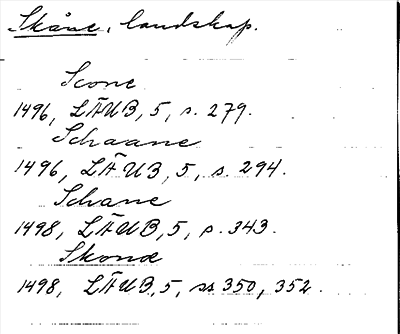 Skåne, landskap.
Scone
1496, LÄUB, 5, s. 279.
Schaane
1496, LÄUB, 5, s. 294.
Schane
1498, LÄUB, 5, s. 343.
Skonæ
1498, LÄUB, 5, ss 350, 352.